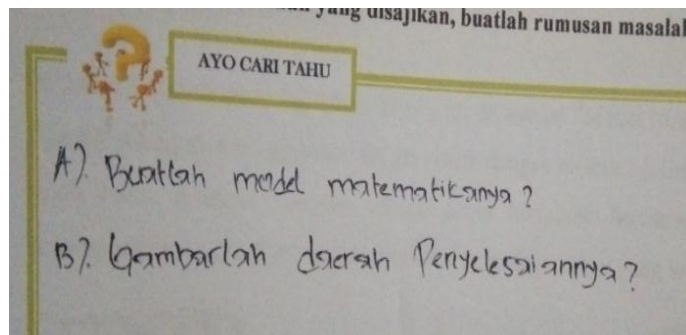 yang disajikan, buatlah rumusan masalah
AYO CARI TAHU
A). Buatlah model matematikanya?
B). Gambarlah daerah Penyelesaiannya?